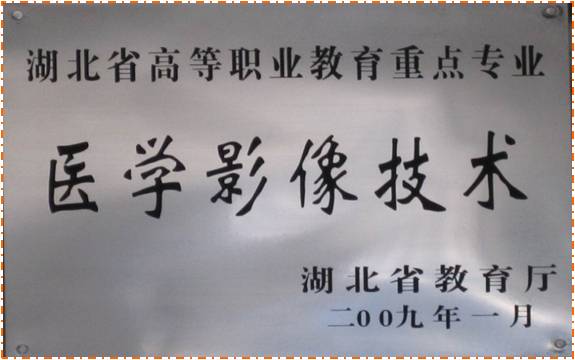 湖北省高等职业教育重点专业
医学影像技术
湖北省教育厅
二00九年一月